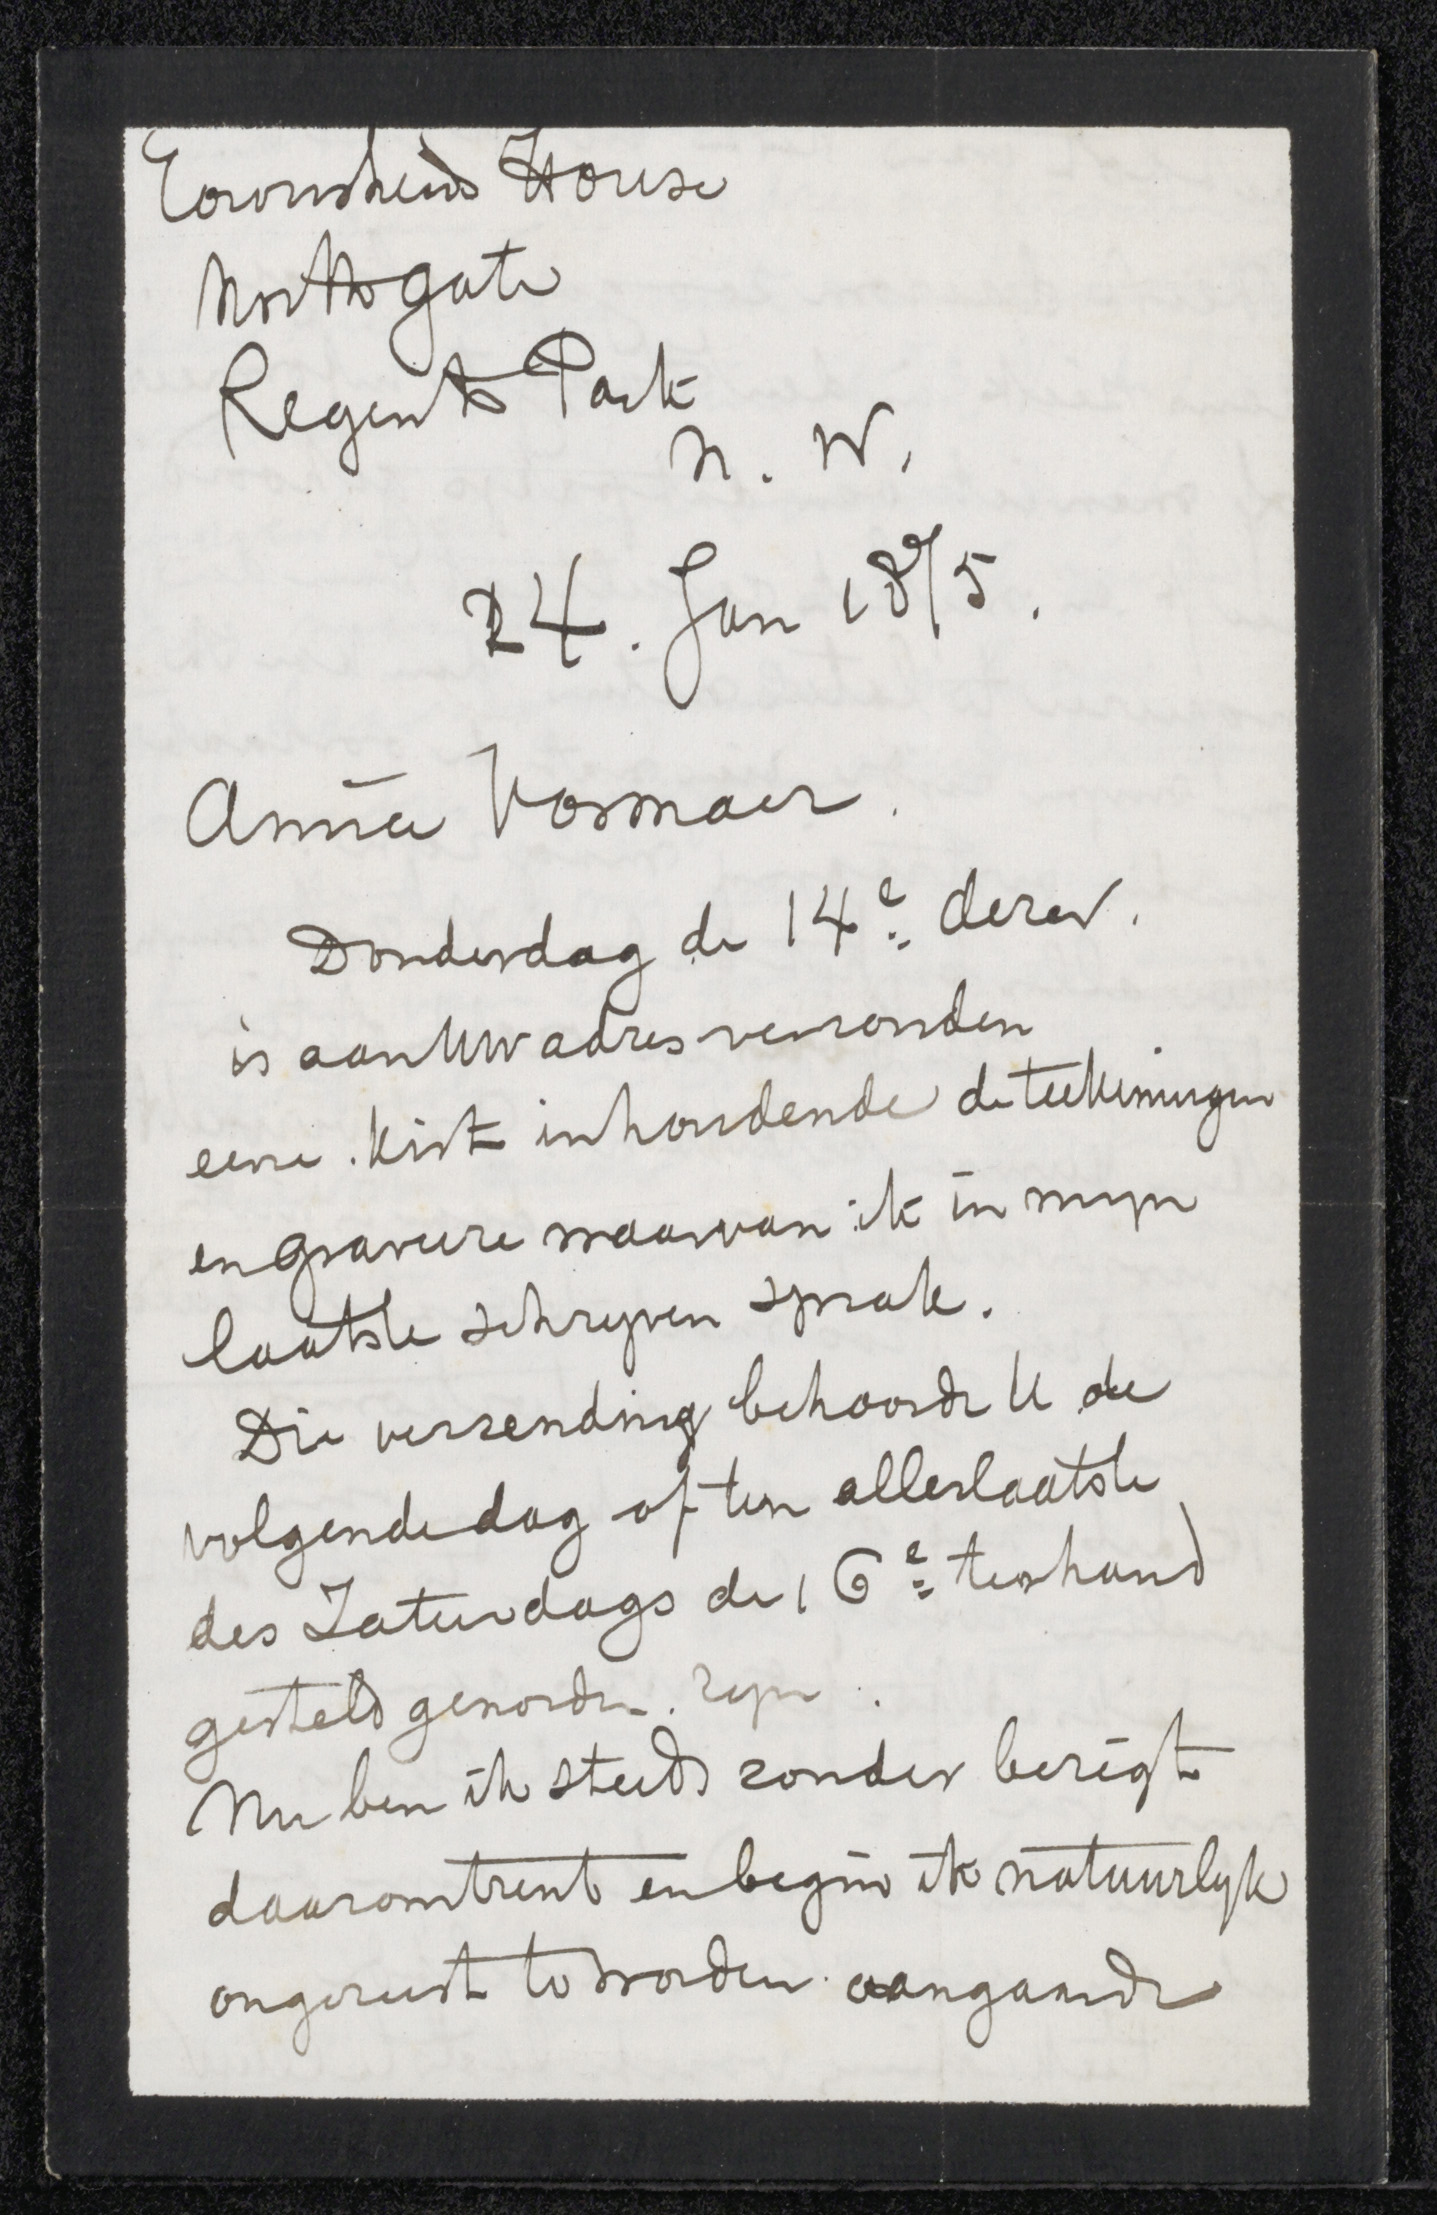 Townshend House
North gate
Regents Park
N. W.
24. Jan 1875.
Amice Vosmaer.
Donderdag de 14e dezer.
is aan Uw adres verzonden
eene kist inhoudende de teekeningen
en gravure waarvan ik in myn
laatste schryven sprak.
Die verzending behoorde U de
volgende dag of ten allerlaatste
des Zaturdags de 16e terhand
gesteld geworden zyn.
Nu ben ik steeds zonder berigt
daaromtrent en begin ik natuurlyk
ongerust te worden aangaande